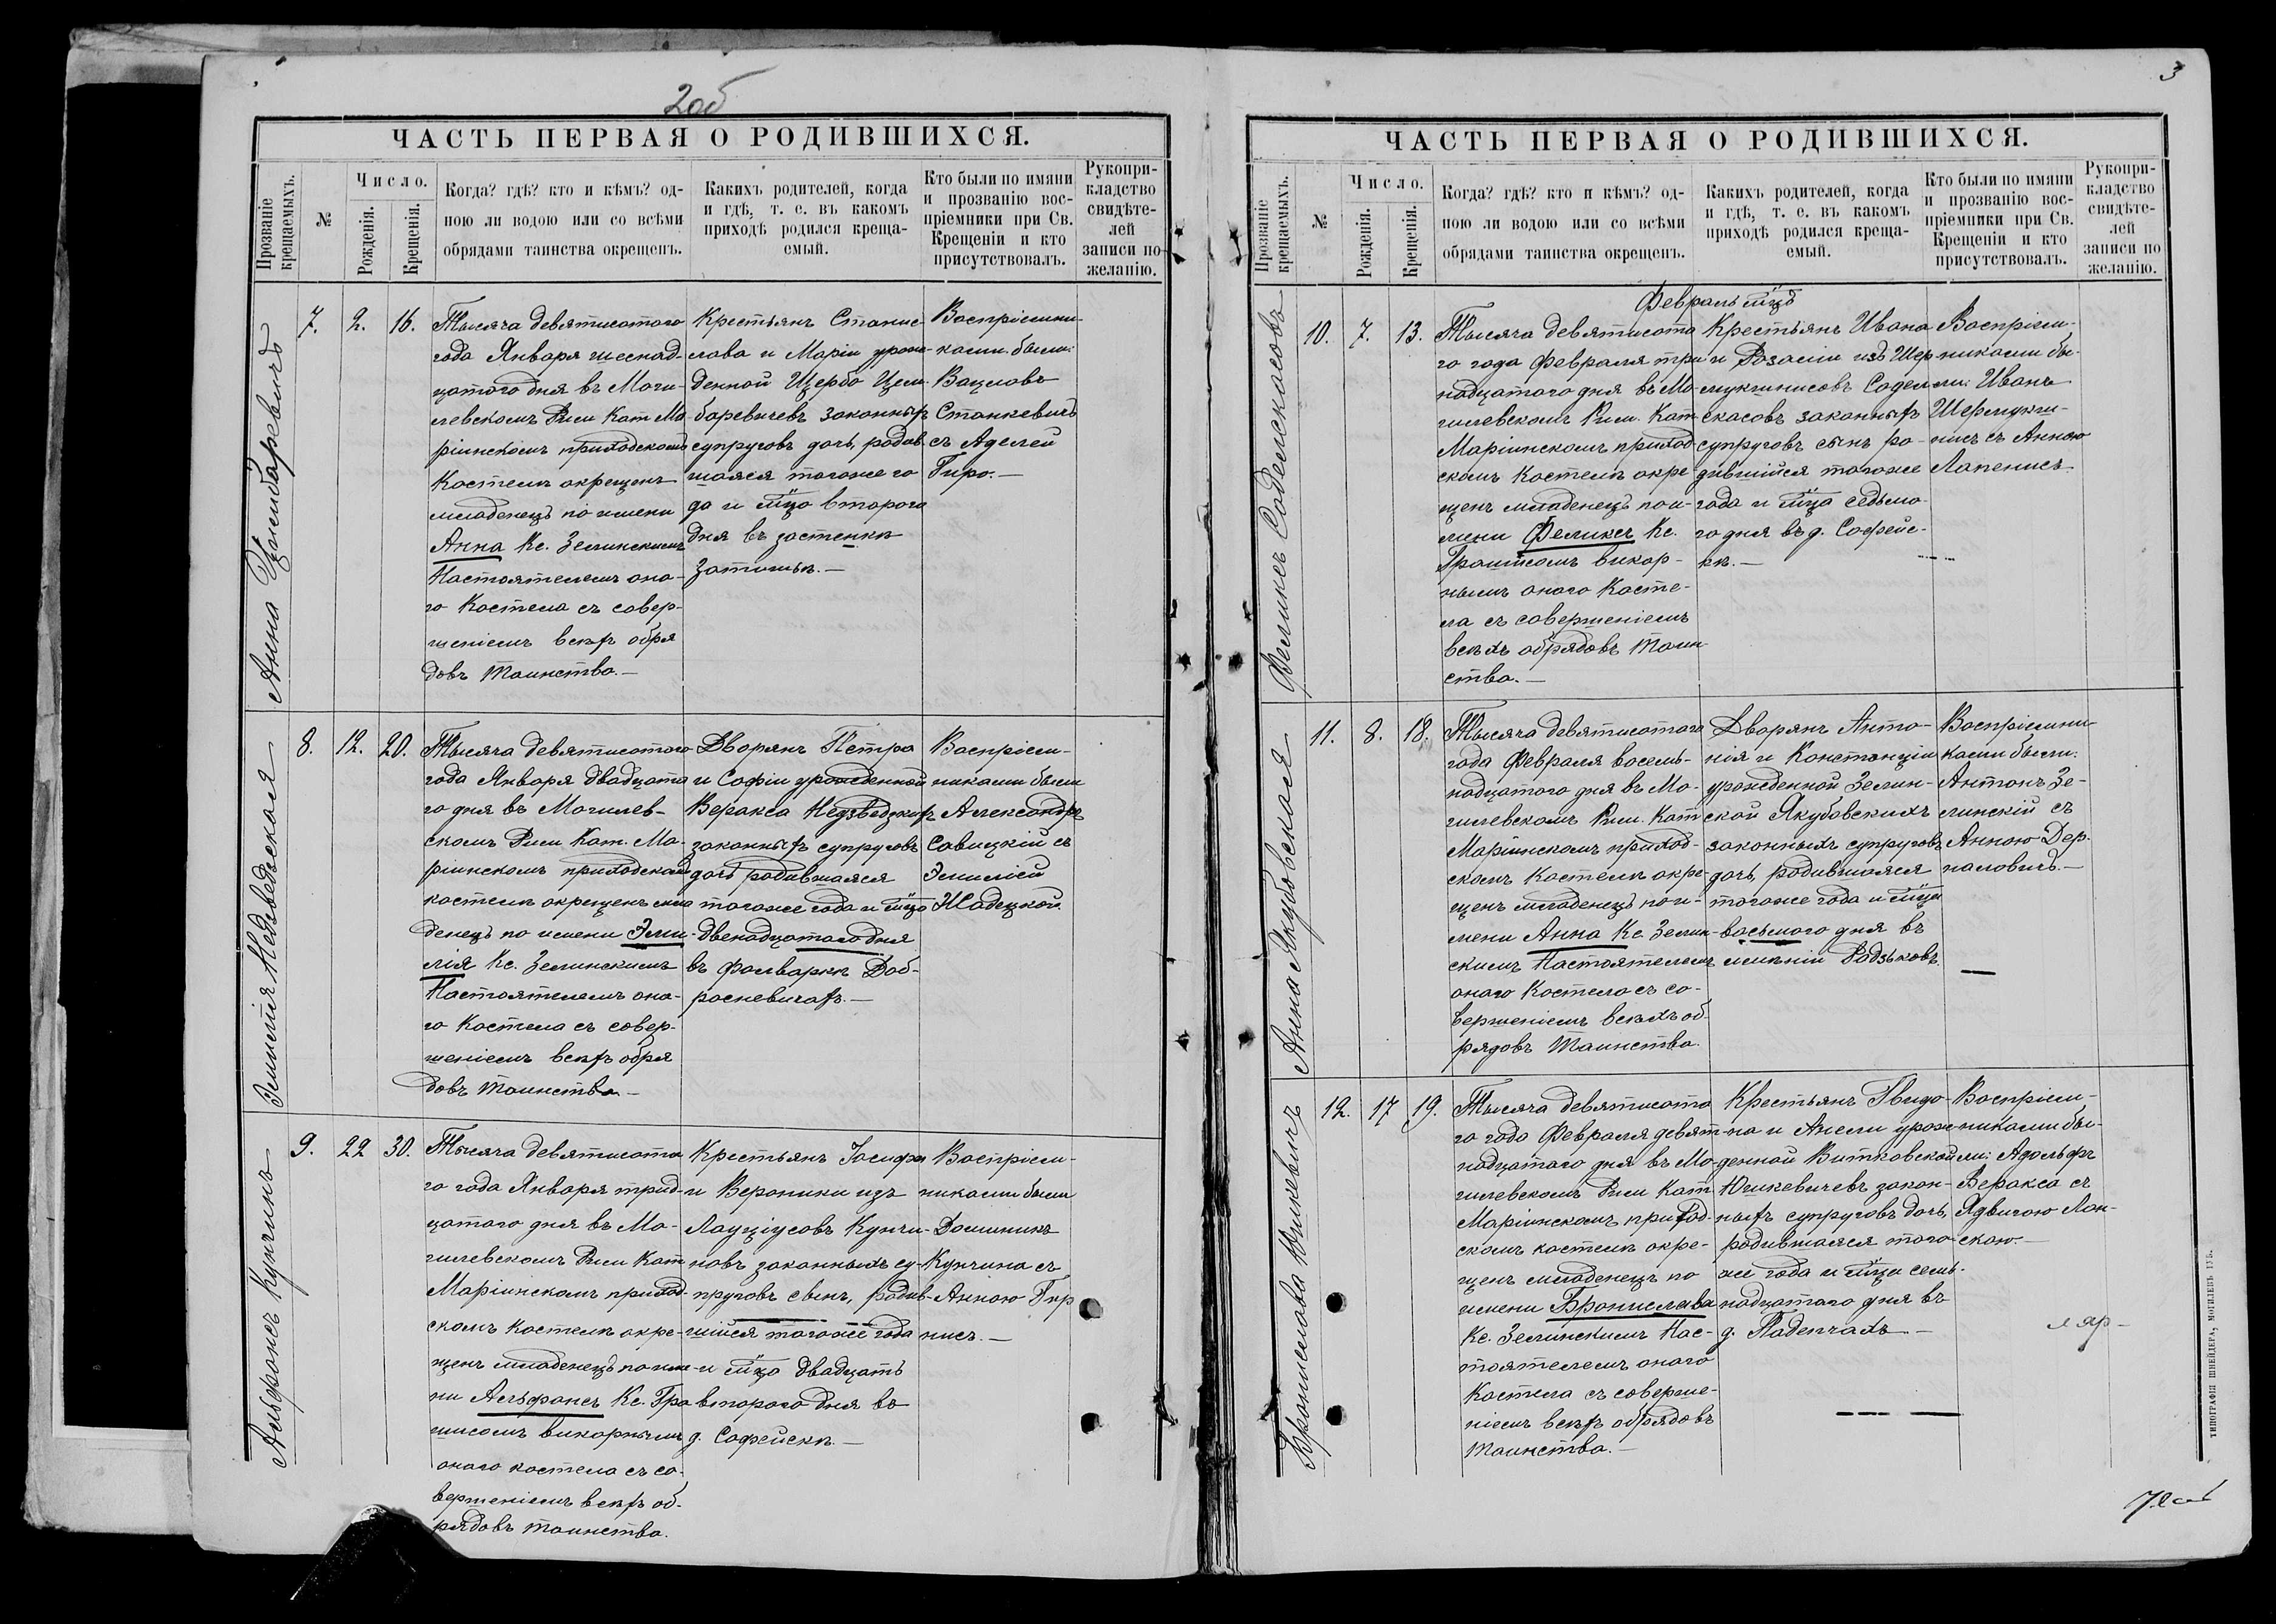 2об
ЧАСТЬ ПЕРВАЯ О РОДИВШИХСЯ.
Прозваніе крещаемыхъ.
№
Число.
Рожденія.
Крещенія.
Когда? гдѣ? кто и кѣмъ? од-
ною ли водою или со всѣми
обрядами таинства окрещенъ.
Какихъ родителей, когда
и гдѣ, т. е. въ какомъ
приходѣ родился креща-
емый.
Кто были по имяни
и прозванію вос-
пріемники при Св.
Крещеніи и кто
присутствовалъ.
Рукопри-
кладство
свидѣте-
лей
записи по
желанію.
Анна Цымбаревичъ
7.
2.
16.
Тысяча девятисотого
года Января шеснад-
цатого дня въ Моги-
левскомъ Рим Кат Ма-
ріинскомъ приходскомъ
Костелѣ окрещенъ
младенецъ по имени
Анна Кс. Зелинскимъ
Настоятелемъ она-
го Костела съ совер-
шеніемъ всѣхъ обря
довъ Таинства.—
Крестьянъ Станис-
лава и Маріи урож-
денной Щербо Цым-
баревичевъ законныхъ
супруговъ дочь, родив-
шаяся тогоже го
да и мѣца второго
дня въ застенкѣ
Затишьѣ.—
Воспріемни-
ками были:
Вацлавъ
Станкевичъ
съ Аделей
Гиро.—
Эмилія Недзведзская
8.
12.
20.
Тысяча девятисотого
года Января двадцата
го дня въ Могилев-
скомъ Рим Кат. Ма-
ріинскомъ приходскомъ
костелѣ окрещенъ мла
денецъ по имени Эми-
лія Кс. Зелинскимъ
Настоятелемъ она-
го Костела съ совер-
шеніемъ всѣхъ обря
довъ Таинства—
Дворянъ Петра
и Софіи урожденной
Веракса Недзведзкихъ
законныхъ супруговъ
дочь родившаяся
тогоже года и мѣца
двенадцатого дня
въ фольваркѣ Доб-
росневичахъ.—
Воспріем-
никами были
Александръ
Савицкій съ
Эмиліей
Жадецкой.
Альфонсъ Кунчинъ
9.
22
30.
Тысяча девятисота
го года Января трид-
цатого дня въ Мо-
гилевскомъ Рим Кат
Маріинскомъ приход-
скомъ Костелѣ окре-
щенъ младенецъ по име-
ни Альфонсъ Кс. Гро
шисомъ викарнымъ
онаго костела съ со-
вершеніемъ всѣхъ об-
рядовъ таинства.
Крестьянъ Іосифа
и Вероники изъ
Лауціусовъ Кунчи-
новъ законныхъ су-
пруговъ сынъ, родив-
шійся тогоже года
и мѣца двадцать
второго дня въ
д. Софейскѣ.—
Воспріем-
никами были
Доминикъ
Кунчина съ
Анною Гир
нисъ.—
3
ЧАСТЬ ПЕРВАЯ О РОДИВШИХСЯ.
Прозваніе крещаемыхъ.
№
Число.
Рожденія.
Крещенія.
Когда? гдѣ? кто и кѣмъ? од-
ною ли водою или со всѣми
обрядами таинства окрещенъ.
Какихъ родителей, когда
и гдѣ, т. е. въ какомъ
приходѣ родился креща-
емый.
Кто были по имяни
и прозванію вос-
пріемники при Св.
Крещеніи и кто
присутствовалъ.
Рукопри-
кладство
свидѣте-
лей
записи по
желанію.
Февраль мѣцъ
Феликсъ Соделскасовъ
10.
7.
13.
Тысяча девятисота
го года Февраля три
надцатого дня въ Мо-
гилевскомъ Рим. Кат
Маріинскомъ приход-
скомъ Костелѣ окре-
щенъ младенецъ по и-
мени Феликсъ Кс.
Грошисомъ викар-
нымъ онаго Косте-
ла съ совершеніемъ
всѣхъ обрядовъ Таин
ства.—
Крестьянъ Ивана
и Розаліи изъ Шер-
мукшнисовъ Содел-
скасовъ законныхъ
супруговъ сынъ ро-
дившійся тогоже
года и мѣца седьмо-
го дня въ д. Софейс-
кѣ.—
Воспріем-
никами бы-
ли: Иванъ
Шермукш-
нисъ съ Анною
Лапенисъ
Анна Якубовская
11.
8.
18.
Тысяча девятисотого
года Февраля восемь-
надцатого дня въ Мо-
гилевскомъ Рим. Кат
Маріинскомъ приход-
скомъ Костелѣ окре-
щенъ младенецъ по и-
мени Анна Кс. Зелин-
скимъ Настоятелемъ
онаго Костела съ со-
вершеніемъ всѣхъ об-
рядовъ Таинства.
Дворянъ Анто-
нія и Констанціи
урожденной Зелин-
ской Якубовскихъ
законныхъ супруговъ
дочь, родившаяся
тогоже года и мѣца
восьмого дня въ
имѣніи Радзьковъ.
Воспріемни
ками были:
Антонъ Зе-
линскій съ
Анною Дер-
наловичъ.—
Бронислава Юшкевичъ
12.
17
19.
Тысяча девятисота
го года Февраля девят-
надцатого дня въ Мо-
гилевскомъ Рим Кат
Маріинскомъ приход-
скомъ костелѣ окре-
щенъ младенецъ по
имени Бронислава
Кс. Зелинскимъ Нас-
тоятелемъ онаго
Костела съ соверше-
ніемъ всѣхъ обрядовъ
Таинства.—
Крестьянъ Гвидо-
на и Анели урож-
денной Витковской
Юшкевичевъ закон-
ныхъ супруговъ дочь,
родившаяся того
же года и мѣца семь-
надцатого дня въ
д. Паденчахъ—
Воспріем-
никами бы-
ли: Адольфъ
Веракса съ
Ядвигою Лон-
скою.—
ТИПОГРАФІЯ ШНЕЙДЕРА, МОГИЛЕВЪ ГУБ.